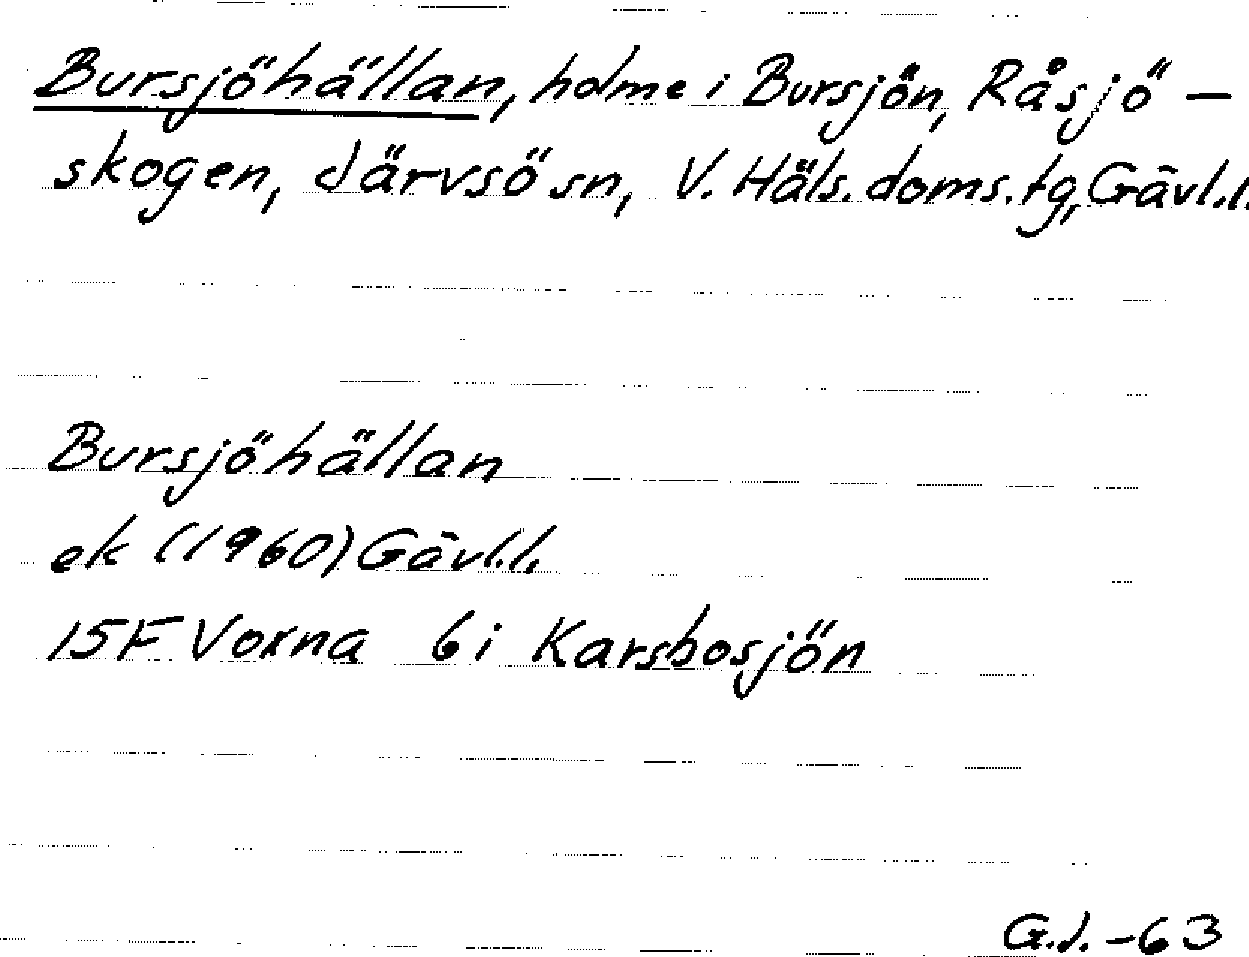 Bursjöhällan, holme i Bursjön, Råsjö-
skogen, Järvsö sn, V. Häls. doms. tg, Gävl.l.
Bursjöhällan
ek (1960) Gävl.l.
15F Voxna 6i Karsbosjön
G.J. -63